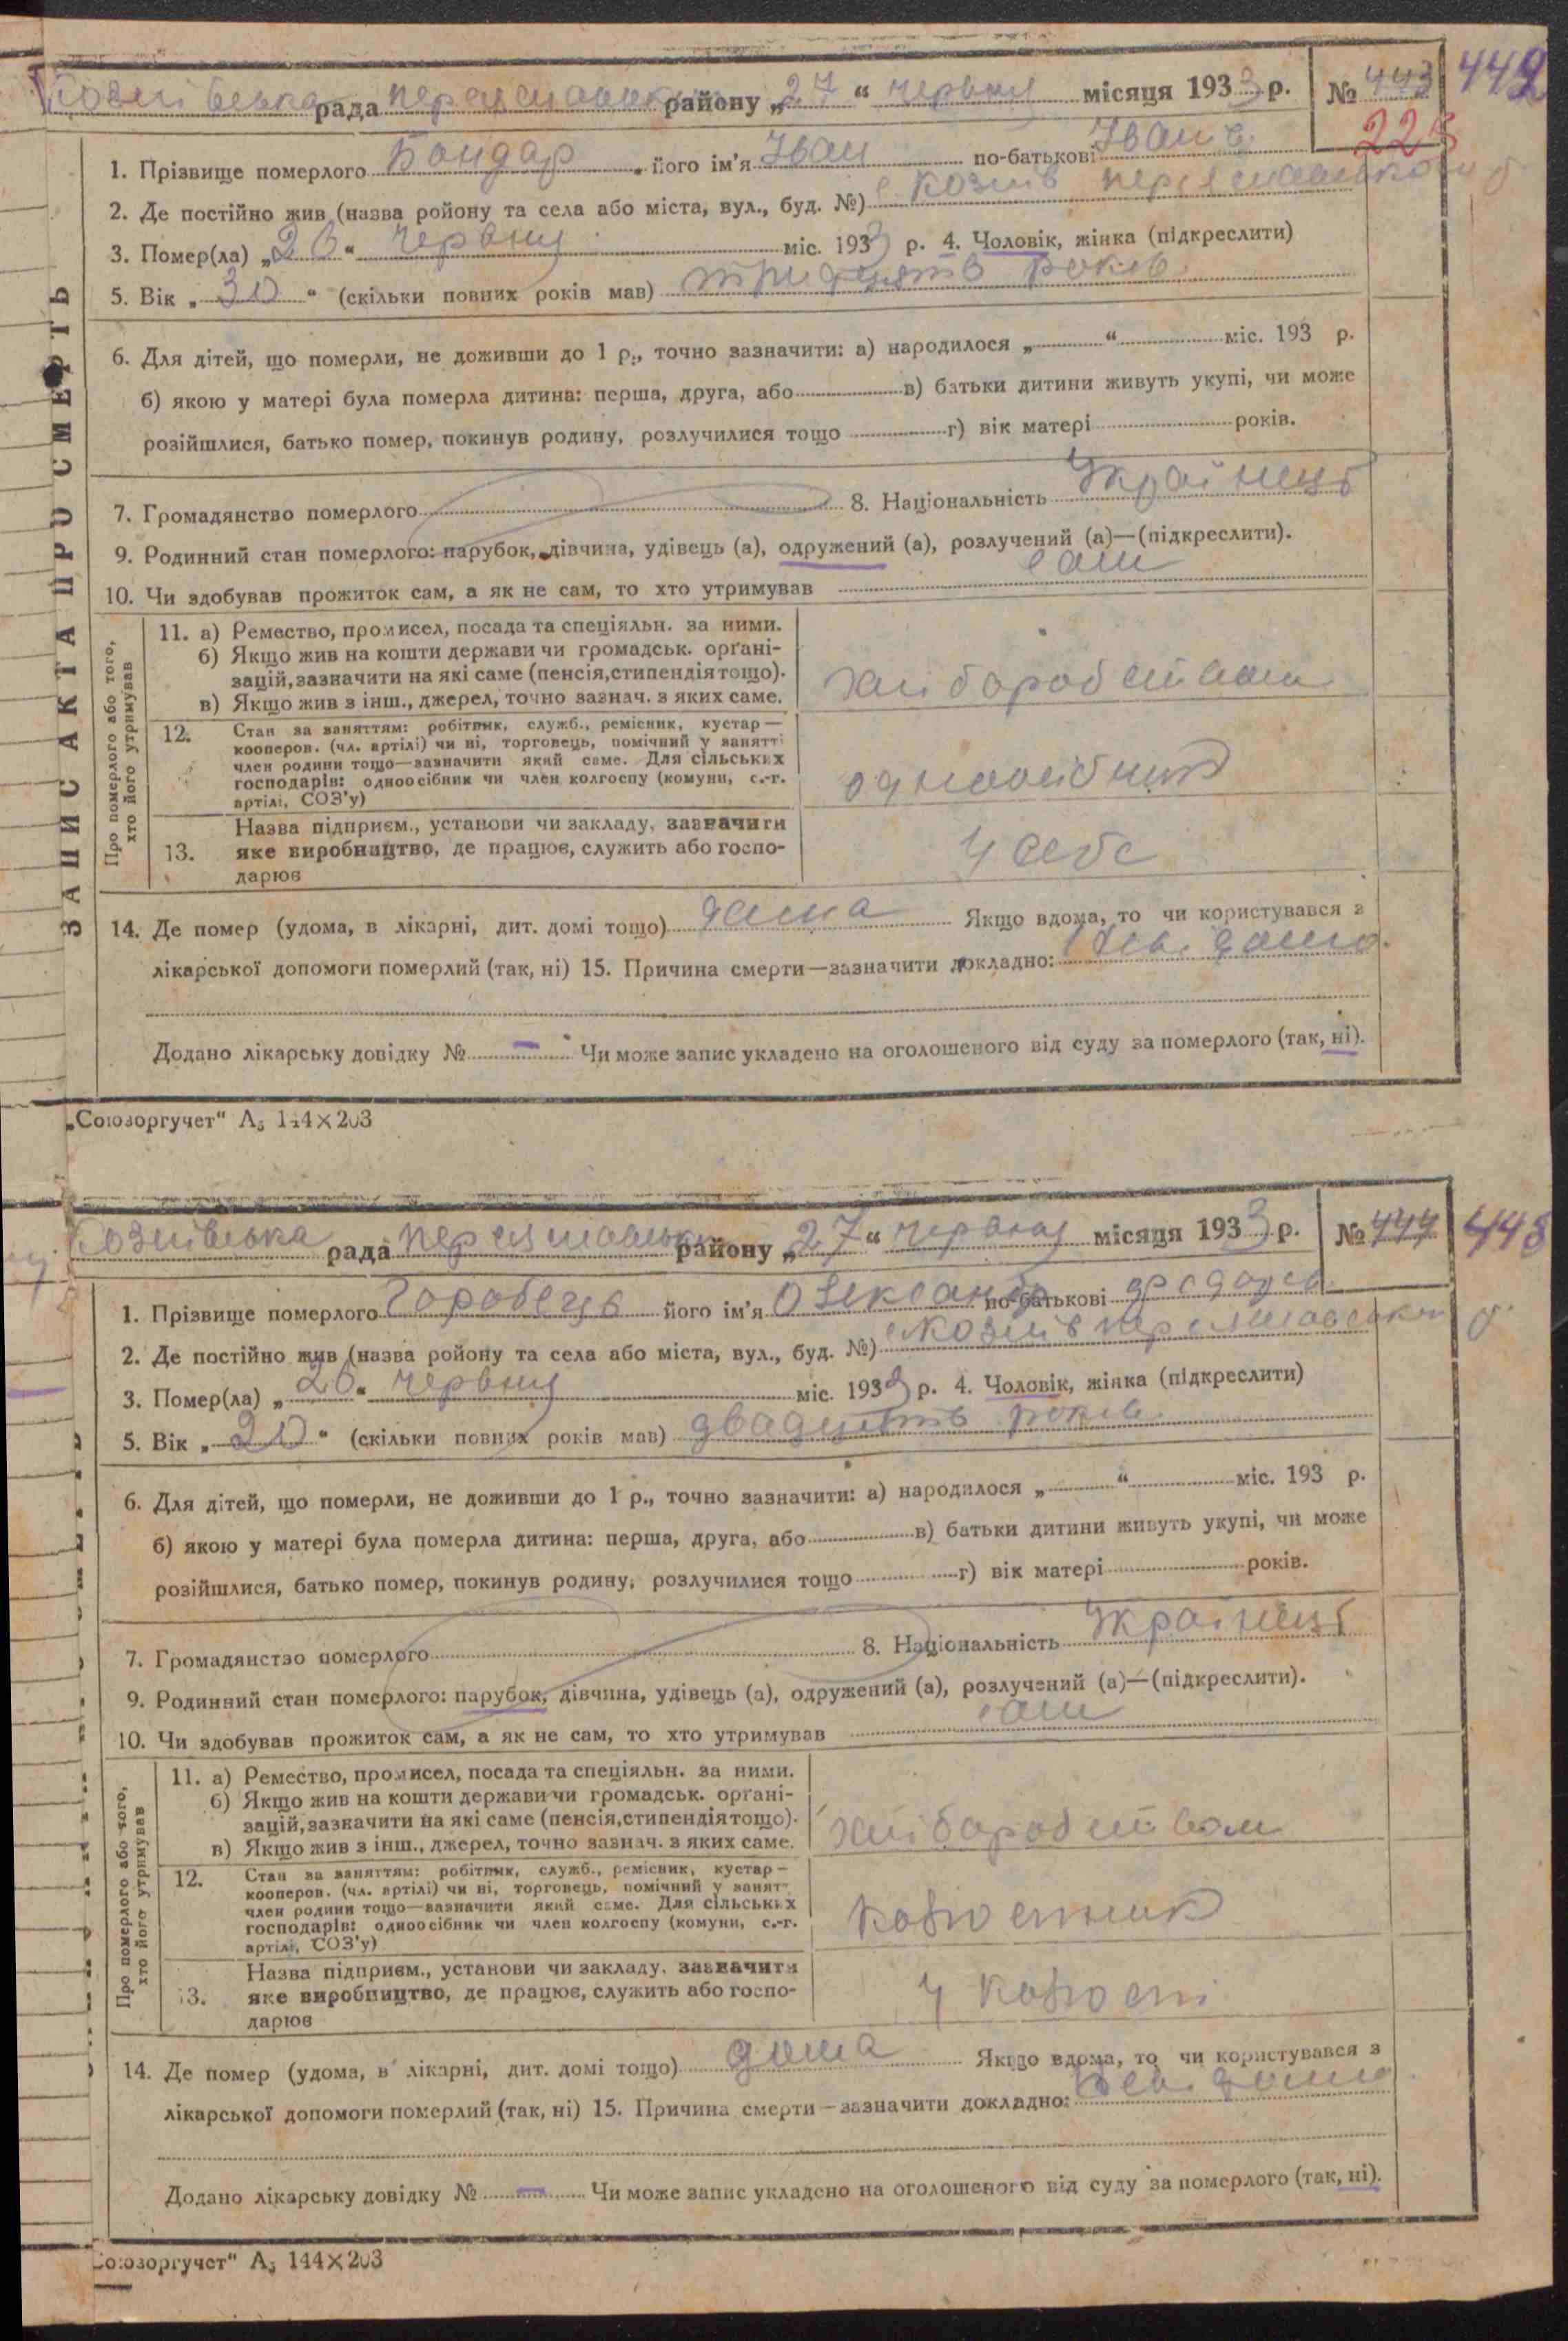 Козлівська рада переяславськ району „27“ червня місяця 1933 р. № 443 442
225
1. Прізвище померлого Бондар його ім'я Іван по-батькові Іванів
2. Де постійно жив (назва ройону та села або міста, вул., буд. №) с Козлів переяславськ р.
3. Помер(ла) „26“ червня міс. 1933 р. 4. Чоловік, жінка (підкреслити)
5. Вік „30“ (скільки повних років мав) тридцять років
6. Для дітей, що померли, не доживши до 1 р., точно зазначити: а) народилося „ “ міс. 193 р.
б) якою у матері була померла дитина: перша, друга, або в) батьки дитини живуть укупі, чи може
розійшлися, батько помер, покинув родину, розлучилися тощо г) вік матері років.
7. Громадянство померлого 8. Національність Українець
9. Родинний стан померлого: парубок, дівчина, удівець (а), одружений (а), розлучений (а)—(підкреслити).
10. Чи здобував прожиток сам, а як не сам, то хто утримував сам
ЗАПИС АКТА ПРО СМЕРТЬ
Про померлого або того, хто його утримував
11. а) Ремество, промисел, посада та спеціяльн. за ними.
б) Якщо жив на кошти держави чи громадськ. орґані-
зацій, зазначити на які саме (пенсія, стипендія тощо).
в) Якщо жив з інш., джерел, точно зазнач. з яких саме.
хліборобством
12. Стан за заняттям: робітник, служб., ремісник, кустар—
кооперов. (чл. артілі) чи ні, торговець, помічний у занятті
член родини тощо—зазначити який саме. Для сільських
господарів: одноосібник чи член колгоспу (комуни, с.-г.
артілі, СОЗ'у)
одноосібник
13. Назва підприєм., установи чи закладу, зазначити
яке виробництво, де працює, служить або госпо-
дарює
у себе
14. Де помер (удома, в лікарні, дит. домі тощо) дома Якщо вдома, то чи користувався з
лікарської допомоги померлий (так, ні) 15. Причина смерти—зазначити докладно: Невідомо
Додано лікарську довідку № — Чи може запис укладено на оголошеного від суду за померлого (так, ні).
„Союзоргучет“ А5 144×203
Козлівська рада переяславськ району „27“ червня місяця 1933 р. № 444 443
1. Прізвище померлого Горобець його ім'я Олександр по-батькові Федоров
2. Де постійно жив (назва ройону та села або міста, вул., буд. №) с Козлів переяславськ р.
3. Помер(ла) „26“ червня міс. 1933 р. 4. Чоловік, жінка (підкреслити)
5. Вік „20“ (скільки повних років мав) двадцять років
6. Для дітей, що померли, не доживши до 1 р., точно зазначити: а) народилося „ “ міс. 193 р.
б) якою у матері була померла дитина: перша, друга, або в) батьки дитини живуть укупі, чи може
розійшлися, батько помер, покинув родину, розлучилися тощо г) вік матері років.
7. Громадянство померлого 8. Національність Українець
9. Родинний стан померлого: парубок, дівчина, удівець (а), одружений (а), розлучений (а)—(підкреслити).
10. Чи здобував прожиток сам, а як не сам, то хто утримував сам
Про померлого або того, хто його утримував
11. а) Ремество, промисел, посада та спеціяльн. за ними.
б) Якщо жив на кошти держави чи громадськ. орґані-
зацій, зазначити на які саме (пенсія, стипендія тощо).
в) Якщо жив з інш., джерел, точно зазнач. з яких саме.
хліборобством
12. Стан за заняттям: робітник, служб., ремісник, кустар—
кооперов. (чл. артілі) чи ні, торговець, помічний у занятт
член родини тощо—зазначити який саме. Для сільських
господарів: одноосібник чи член колгоспу (комуни, с.-г.
артілі, СОЗ'у)
колгоспник
13. Назва підприєм., установи чи закладу, зазначити
яке виробництво, де працює, служить або госпо-
дарює
у колгоспі
14. Де помер (удома, в лікарні, дит. домі тощо) дома Якщо вдома, то чи користувався з
лікарської допомоги померлий (так, ні) 15. Причина смерти—зазначити докладно: Невідомо
Додано лікарську довідку № — Чи може запис укладено на оголошеного від суду за померлого (так, ні).
Союзоргучет“ А5 144×203